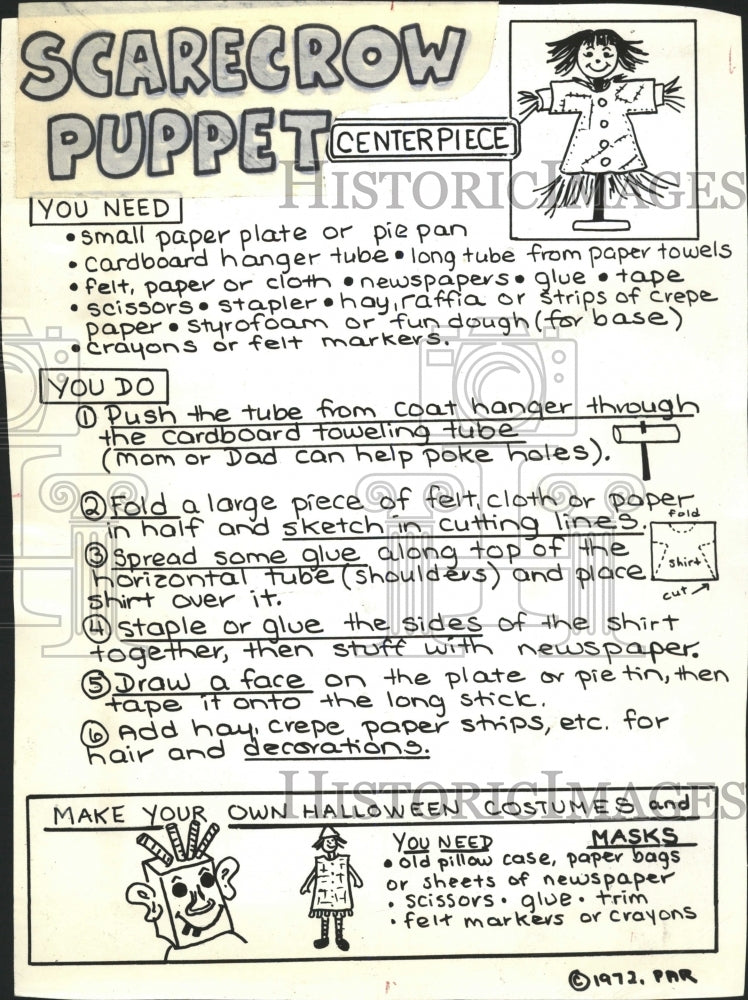 SCARECROW
PUPPET
CENTERPIECE
HISTORICIMAGES
YOU NEED
• small paper plate or pie pan
• cardboard hanger tube • long tube from paper towels
• felt, paper or cloth • newspapers • glue • tape
• scissors • stapler • hay, raffia or strips of crepe
paper • styrofoam or fun dough (for base)
• crayons or felt markers.
YOU DO
① Push the tube from coat hanger through
the cardboard toweling tube
(mom or Dad can help poke holes).
② Fold a large piece of felt, cloth or paper
in half and sketch in cutting lines.
fold
shirt
cut
③ Spread some glue along top of the
horizontal tube (shoulders) and place
shirt over it.
④ staple or glue the sides of the shirt
together, then stuff with newspaper.
⑤ Draw a face on the plate or pie tin, then
tape it onto the long stick.
⑥ Add hay, crepe paper strips, etc. for
hair and decorations.
HISTORICIMAGES
MAKE YOUR OWN HALLOWEEN COSTUMES and
MASKS
YOU NEED
• old pillow case, paper bags
or sheets of newspaper
• scissors • glue • trim
• felt markers or crayons
©1972, PAR